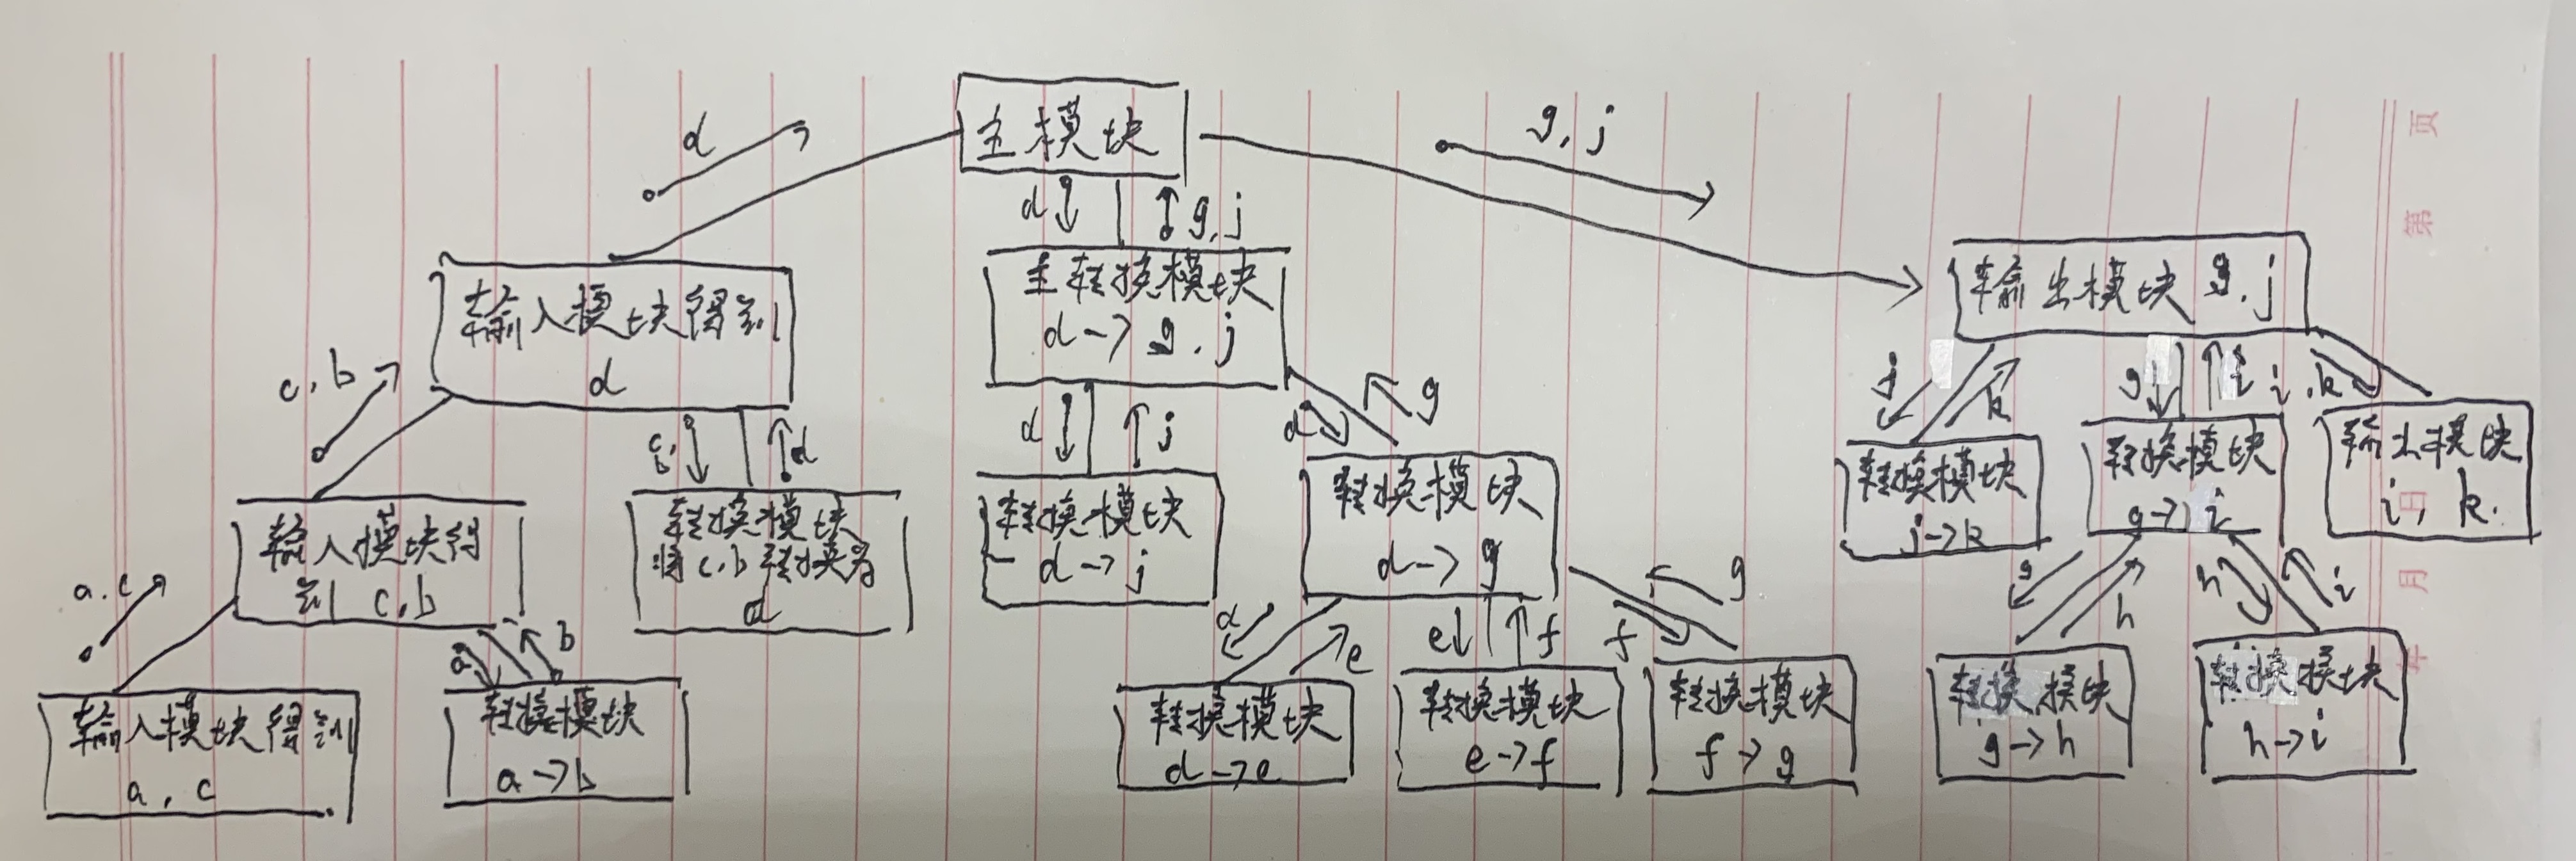 主模块
d
g, j
d
g, j
输入模块得到
d
主转换模块
d→g, j
输出模块 g, j
c, b
c,
b
d
d
j
d
g
j
k
g
i
i, k
输入模块得
到 c, b
转换模块
将c,b转换为
d
转换模块
d→j
转换模块
d→g
转换模块
j→k
转换模块
g→i
输出模块
i, k.
a, c
a
b
d
e
e
f
f
g
g
h
h
i
输入模块得到
a, c
转换模块
a→b
转换模块
d→e
转换模块
e→f
转换模块
f→g
转换模块
g→h
转换模块
h→i
页
第
日
月
年